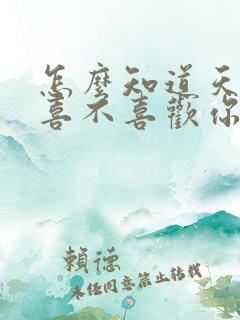 怎麼知道天
喜不喜歡你
賴德
未任同意禁止转载